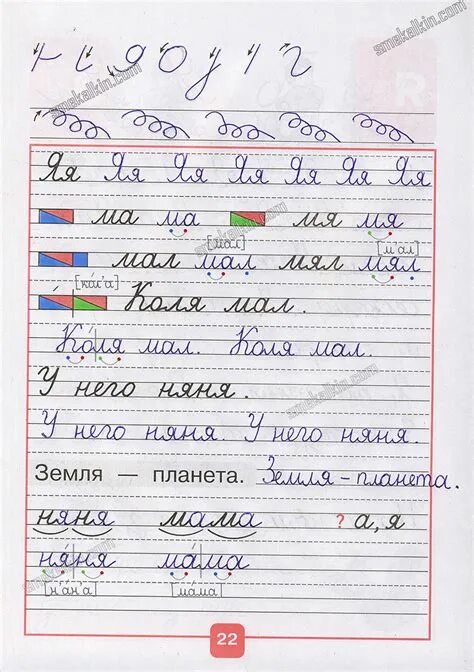 smekalkin.com
Я
Яя Яя Яя Яя Яя Яя Яя
ма ма мя мя
[мал] [м'ал]
мал мал мял мял
Коля мал.
Коля мал. Коля мал.
У него няня.
У него няня. У него няня.
Земля — планета. Земля - планета.
няня мама ? а, я
няня мама
[н'ан'а] [мама]
22